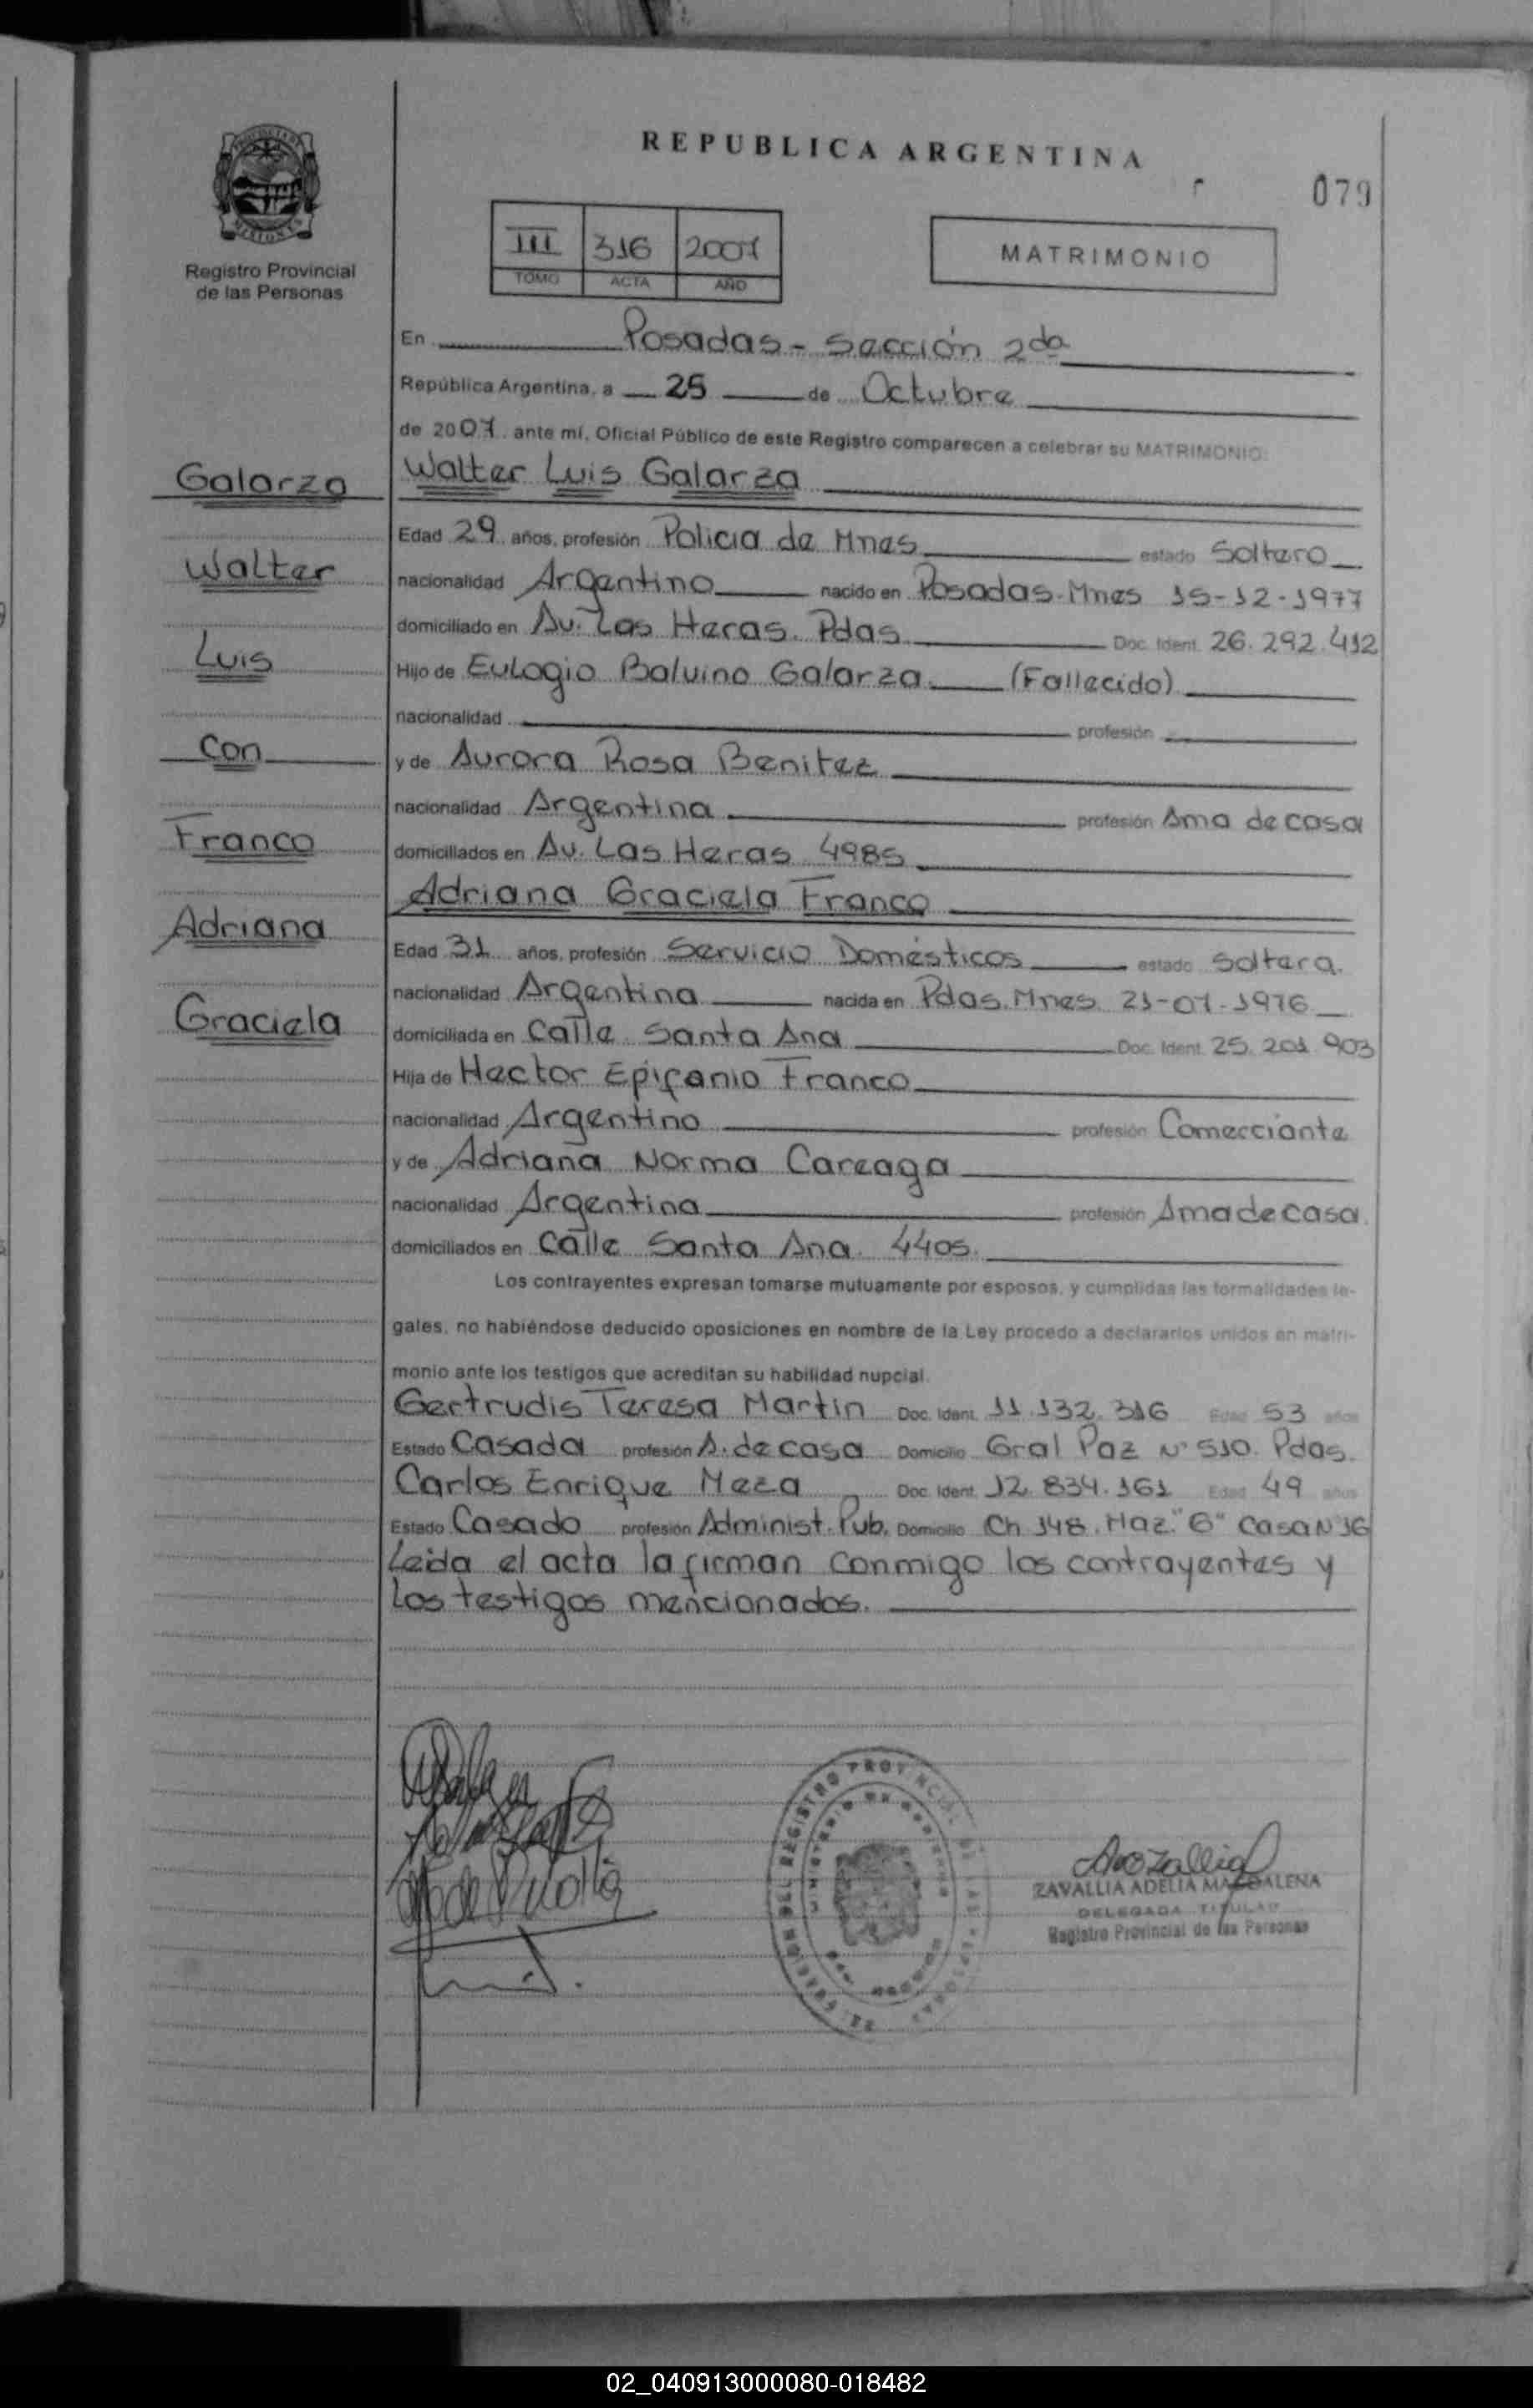 REPUBLICA ARGENTINA
079
Registro Provincial
de las Personas
III 316 2007
TOMO ACTA AÑO
MATRIMONIO
En Posadas - Sección 2da
República Argentina, a 25 de Octubre
de 2007. ante mí, Oficial Público de este Registro comparecen a celebrar su MATRIMONIO:
Galarza
Walter
Luis
Con
Franco
Adriana
Graciela
Walter Luis Galarza
Edad 29 años, profesión Policia de Mnes estado Soltero
nacionalidad Argentino nacido en Posadas-Mnes 15-12-1977
domiciliado en Av. Las Heras. Pdas Doc. Ident. 26.292.412
Hijo de Eulogio Balvino Galarza (Fallecido)
nacionalidad profesión
y de Aurora Rosa Benitez
nacionalidad Argentina profesión Ama de casa
domiciliados en Av. Las Heras 4985
Adriana Graciela Franco
Edad 31 años, profesión Servicio Domésticos estado Soltera.
nacionalidad Argentina nacida en Pdas. Mnes. 21-07-1976
domiciliada en Calle Santa Ana Doc. Ident. 25.201.903
Hija de Hector Epifanio Franco
nacionalidad Argentino profesión Comerciante
y de Adriana Norma Careaga
nacionalidad Argentina profesión Ama de casa.
domiciliados en Calle Santa Ana. 4405.
Los contrayentes expresan tomarse mutuamente por esposos, y cumplidas las formalidades le-
gales, no habiéndose deducido oposiciones en nombre de la Ley procedo a declararlos unidos en matri-
monio ante los testigos que acreditan su habilidad nupcial.
Gertrudis Teresa Martin Doc. Ident. 11.132.316 Edad 53 años
Estado Casada profesión A. de casa Domicilio Gral Paz N° 510. Pdas.
Carlos Enrique Meza Doc. Ident. 12.834.161 Edad 49 años
Estado Casado profesión Administ. Pub. Domicilio Ch 148. Maz. "6" Casa N°16
Leida el acta la firman conmigo los contrayentes y
los testigos mencionados.
ZAVALLIA ADELIA MAGDALENA
DELEGADA TITULAR
Registro Provincial de las Personas
02_040913000080-018482